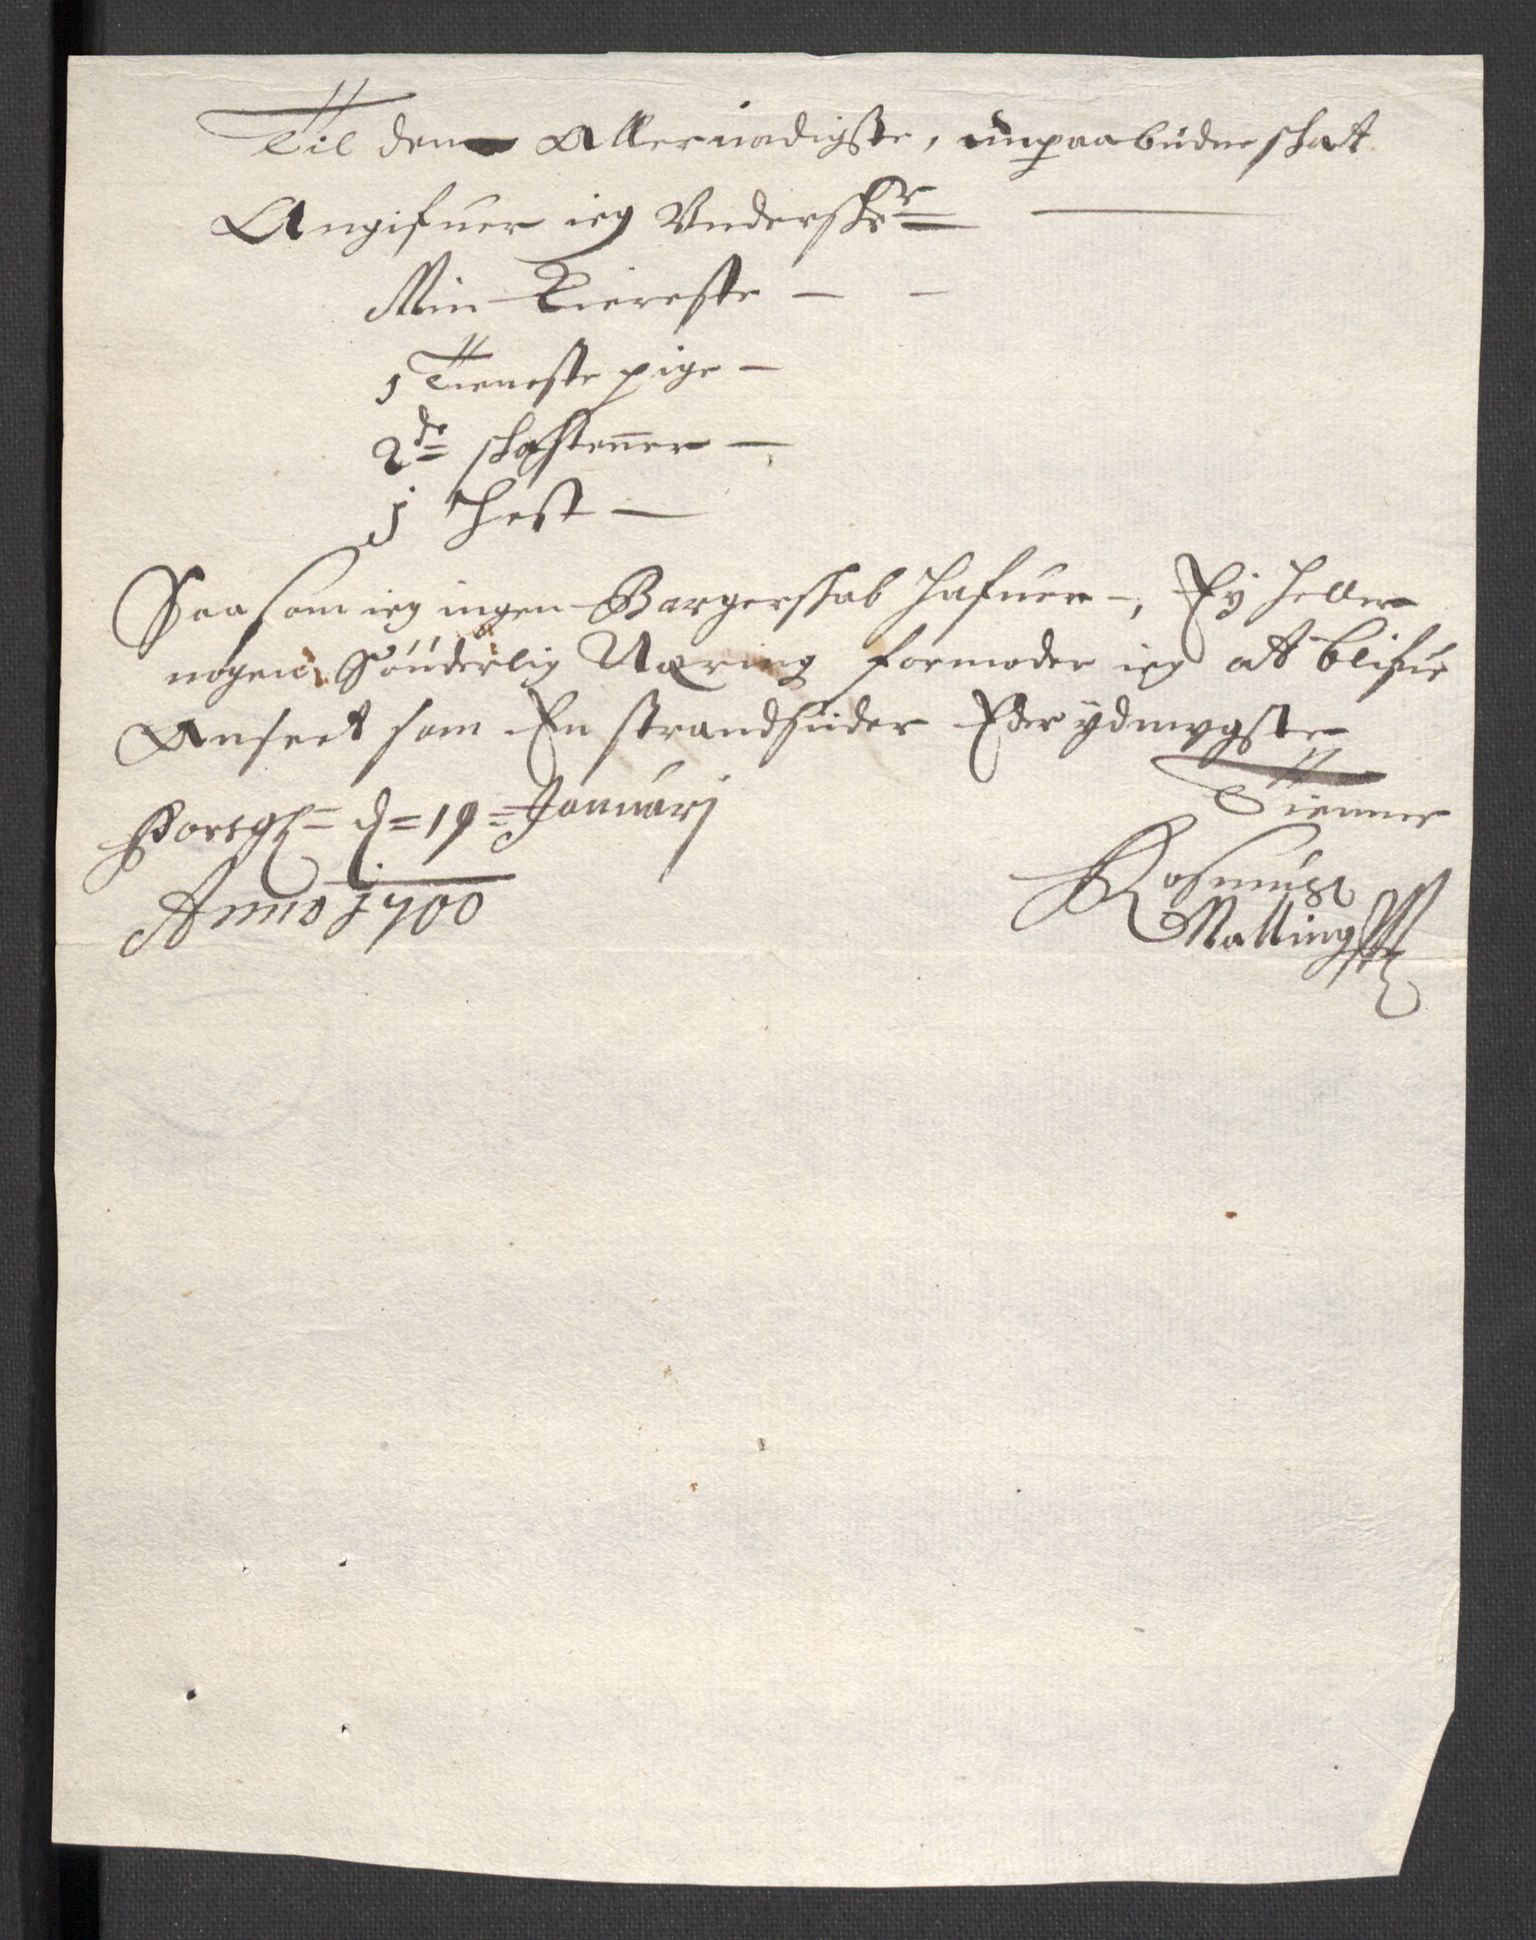 Til den Allernadigste, unpaabudne skat
Angifuer ieg Underskr
Min Kiereste —
1 Tieneste pige —
2de skorstener —
1 Hest —
Saa som ieg ingen Borgerskab hafuer, Ey heller
nogen Sönderlig Næring formoder ieg at blifue
Anseet som En strandsider Eder ydmygste
Tienner
d= 19= Januarj
Anno 1700
Rasmus